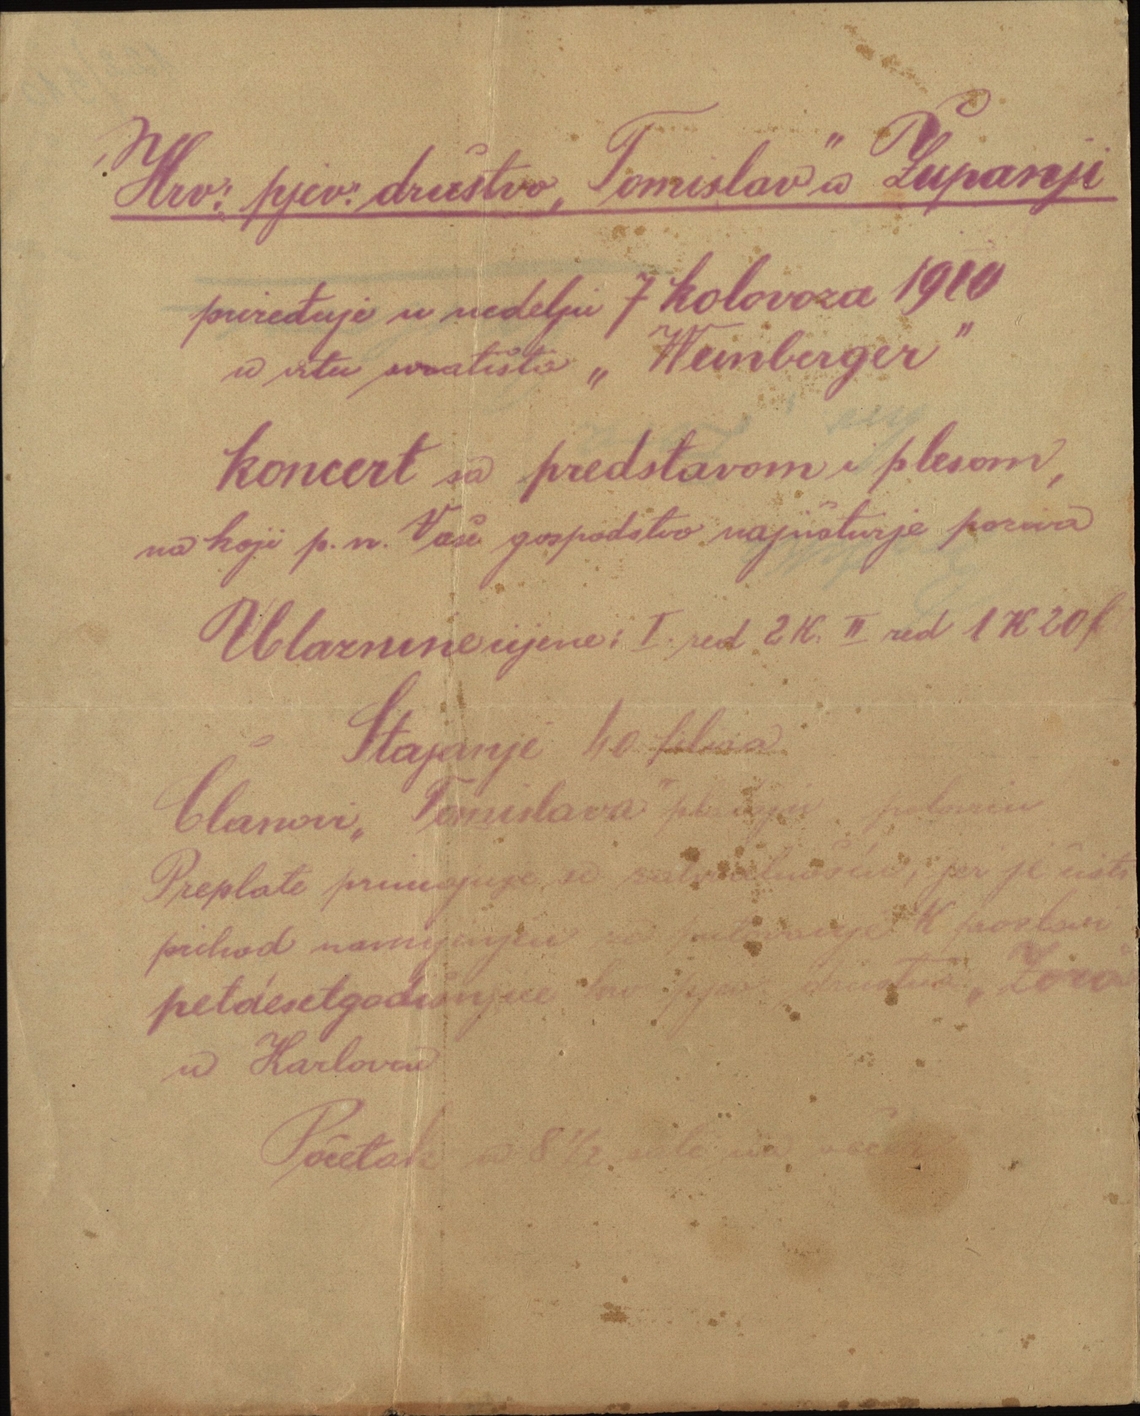 Hrv. pjev. društvo „Tomislav" u Županji
priređuje u nedelju 7 kolovoza 1910
u vrtu svratišta „Weinberger"
koncert sa predstavom i plesom,
na koji p. n. Vaše gospodstvo najuštivje poziva
Ulaznine cijene: I. red 2 K. II red 1 K 20 f
Stajanje 40 filira
Članovi „Tomislava" plaćaju polovicu
Preplate primajuje se sa zahvalnošću, jer je čisti
prihod namijenjen za putovanje k proslavi
petdesetgodišnjice hrv. pjev. društva „Zora"
u Karlovcu
Početak u 8 1/2 sati na večer